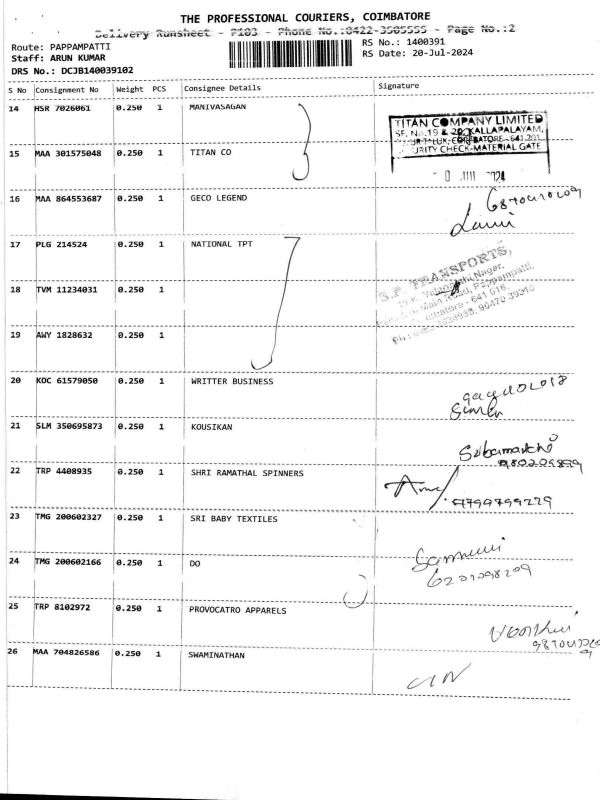 THE PROFESSIONAL COURIERS, COIMBATORE
Delivery Runsheet - P103 - Phone No.:0422-3505555 - Page No.:2
Route: PAPPAMPATTI
Staff: ARUN KUMAR
DRS No.: DCJB140039102
RS No.: 1400391
RS Date: 20-Jul-2024
S No Consignment No Weight PCS Consignee Details Signature
14 HSR 7026061 0.250 1 MANIVASAGAN
TITAN COMPANY LIMITED
SF. No.19 & 20, KALLAPALAYAM,
COIMBATORE - 641 201
SECURITY CHECK-MATERIAL GATE
15 MAA 301575048 0.250 1 TITAN CO
16 MAA 864553687 0.250 1 GECO LEGEND
17 PLG 214524 0.250 1 NATIONAL TPT
S.P. TRANSPORTS,
Nagar,
Main Road, Pappampatti,
Coimbatore - 641 016.
90470 39310
18 TVM 11234031 0.250 1
19 AWY 1828632 0.250 1
20 KOC 61579050 0.250 1 WRITTER BUSINESS
21 SLM 350695873 0.250 1 KOUSIKAN
22 TRP 4408935 0.250 1 SHRI RAMATHAL SPINNERS
23 TMG 200602327 0.250 1 SRI BABY TEXTILES
24 TMG 200602166 0.250 1 DO
6201098209
25 TRP 8102972 0.250 1 PROVOCATRO APPARELS
26 MAA 704826586 0.250 1 SWAMINATHAN